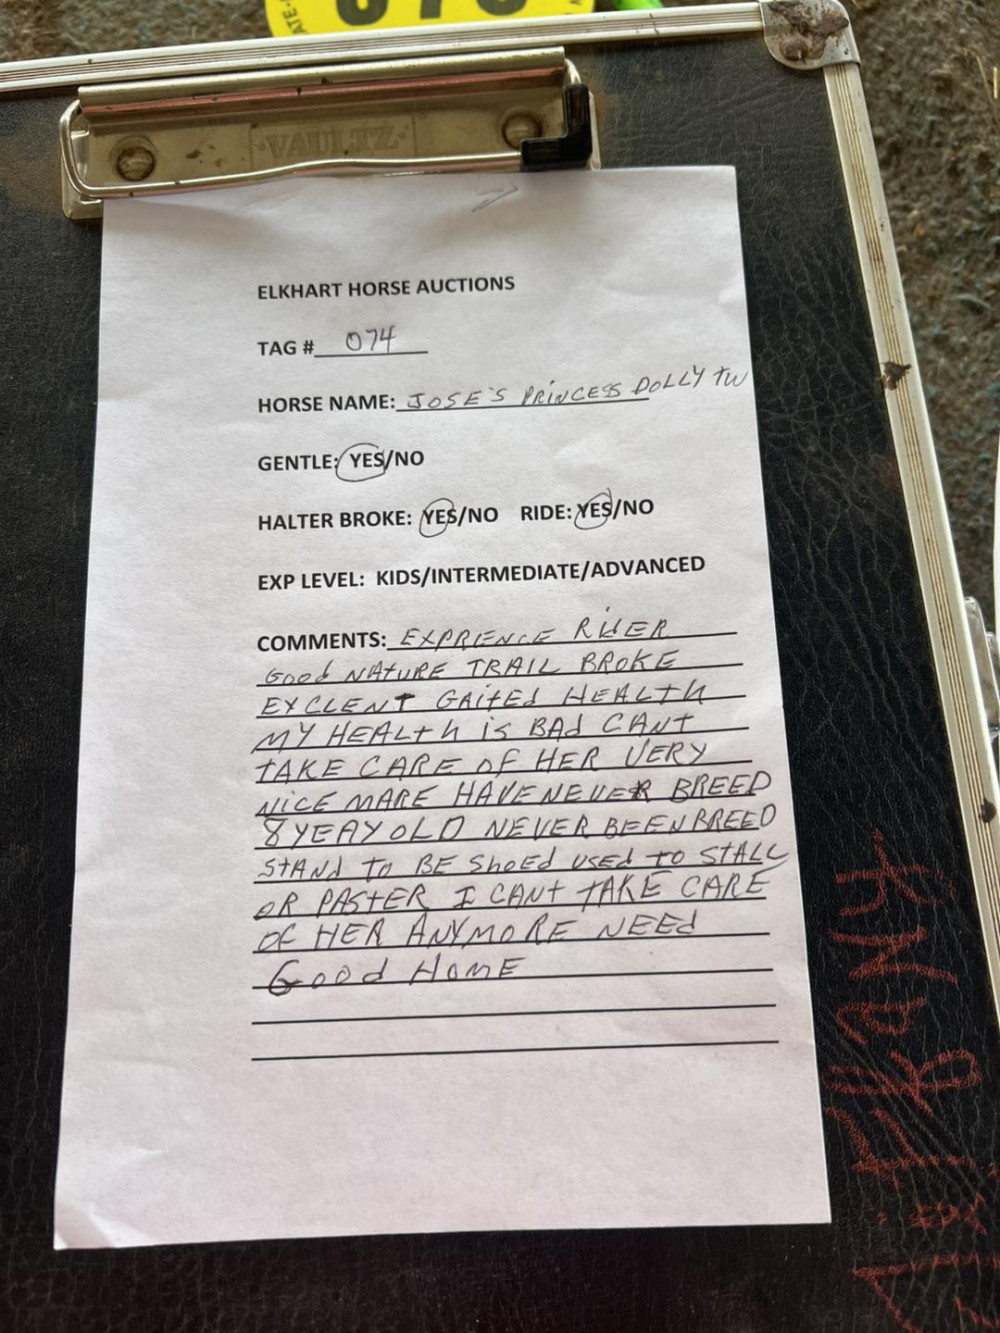 VAULTZ
ELKHART HORSE AUCTIONS
TAG # 074
HORSE NAME: JOSE'S PRINCESS DOLLY TW
GENTLE: YES/NO
HALTER BROKE: YES/NO RIDE: YES/NO
EXP LEVEL: KIDS/INTERMEDIATE/ADVANCED
COMMENTS: EXPRIENCE RIdER
Good NATURE TRAIL BROKE
EXCLENT GAiTEd HEALTh
MY HEALTh iS BAd CANT
TAKE CARE OF HER VERY
NiCE MARE HAVE NEVER BREED
8 YEAY OLD NEVER BEEN BREED
STANd To BE ShoEd USEd TO STALL
OR PASTER I CANt TAKE CARE
OF HER ANYMORE NEEd
Good HOME